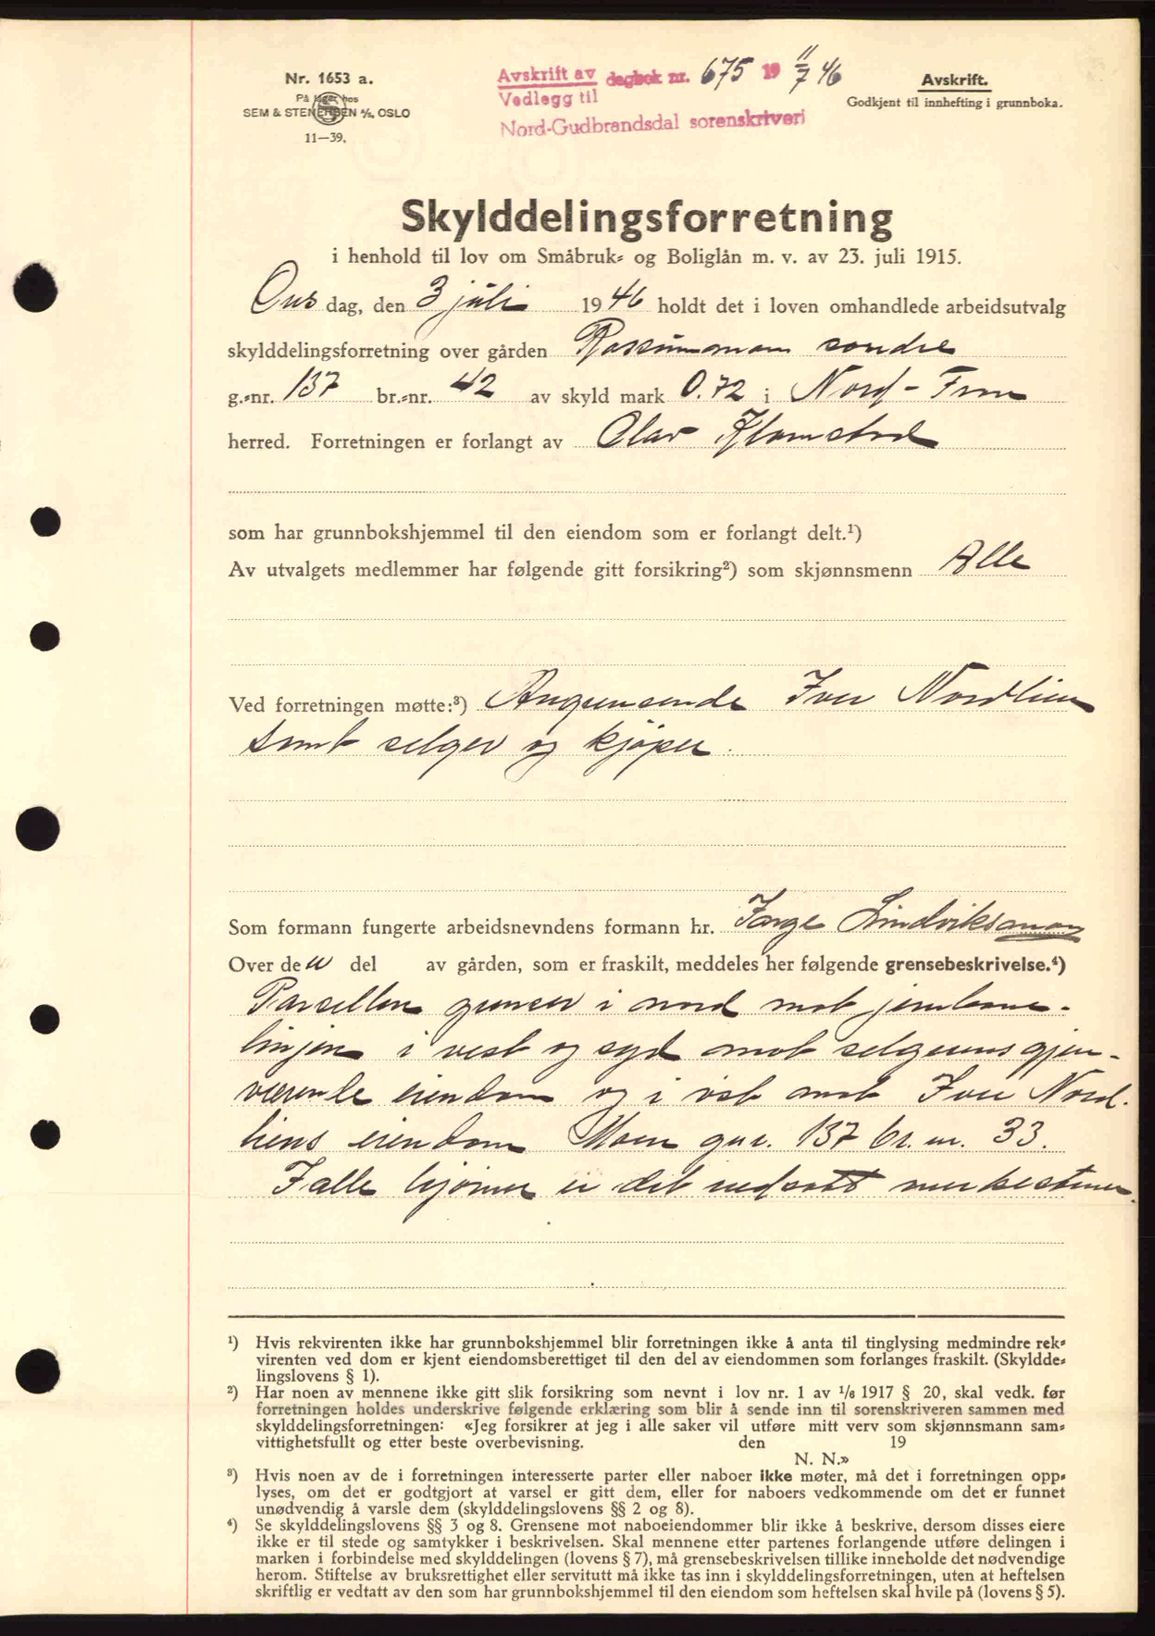 Nr. 1653 a.
På lager hos
SEM & STENERSEN A/S, OSLO
11—39.
Avskrift av dagbok nr. 675 19 11/7 46
Vedlegg til
Nord-Gudbrandsdal sorenskriveri
Avskrift.
Godkjent til innhefting i grunnboka.
Skylddelingsforretning
i henhold til lov om Småbruk- og Boliglån m. v. av 23. juli 1915.
Ons dag, den 3 juli 1946 holdt det i loven omhandlede arbeidsutvalg
skylddelingsforretning over gården søndre
g.-nr. 137 br.-nr. 42 av skyld mark 0.72 i Nord-Fron
herred. Forretningen er forlangt av Olav Klomstad
som har grunnbokshjemmel til den eiendom som er forlangt delt.¹)
Av utvalgets medlemmer har følgende gitt forsikring²) som skjønnsmenn Alle
Ved forretningen møtte:³) Angrensende Iver Nordlien
samt selger og kjøper.
Som formann fungerte arbeidsnevndens formann hr. Lindviksmoen
Over den del av gården, som er fraskilt, meddeles her følgende grensebeskrivelse.⁴)
Parsellen grenser i nord mot jernbane-
linjen i vest og syd mot selgerens gjen-
værende eiendom og i øst mot Iver Nord-
liens eiendom Moen gnr. 137 br. nr. 33.
I alle hjørner er det nedsatt merkestener.
¹) Hvis rekvirenten ikke har grunnbokshjemmel blir forretningen ikke å anta til tinglysing medmindre rek-
virenten ved dom er kjent eiendomsberettiget til den del av eiendommen som forlanges fraskilt. (Skyldde-
lingslovens § 1).
²) Har noen av mennene ikke gitt slik forsikring som nevnt i lov nr. 1 av 1/6 1917 § 20, skal vedk. før
forretningen holdes underskrive følgende erklæring som blir å sende inn til sorenskriveren sammen med
skylddelingsforretningen: «Jeg forsikrer at jeg i alle saker vil utføre mitt verv som skjønnsmann sam-
vittighetsfullt og etter beste overbevisning. den 19
N. N.»
³) Hvis noen av de i forretningen interesserte parter eller naboer ikke møter, må det i forretningen opp-
lyses, om det er godtgjort at varsel er gitt dem, eller for naboers vedkommende om det er funnet
unødvendig å varsle dem (skylddelingslovens §§ 2 og 8).
⁴) Se skylddelingslovens §§ 3 og 8. Grensene mot naboeiendommer blir ikke å beskrive, dersom disses eiere
ikke er til stede og samtykker i beskrivelsen. Skal mennene etter partenes forlangende utføre delingen i
marken i forbindelse med skylddelingen (lovens § 7), må grensebeskrivelsen tillike inneholde det nødvendige
herom. Stiftelse av bruksrettighet eller servitutt må ikke tas inn i skylddelingsforretningen, uten at heftelsen
skriftlig er vedtatt av den som har grunnbokshjemmel til den eiendom som heftelsen skal hvile på (lovens § 5).